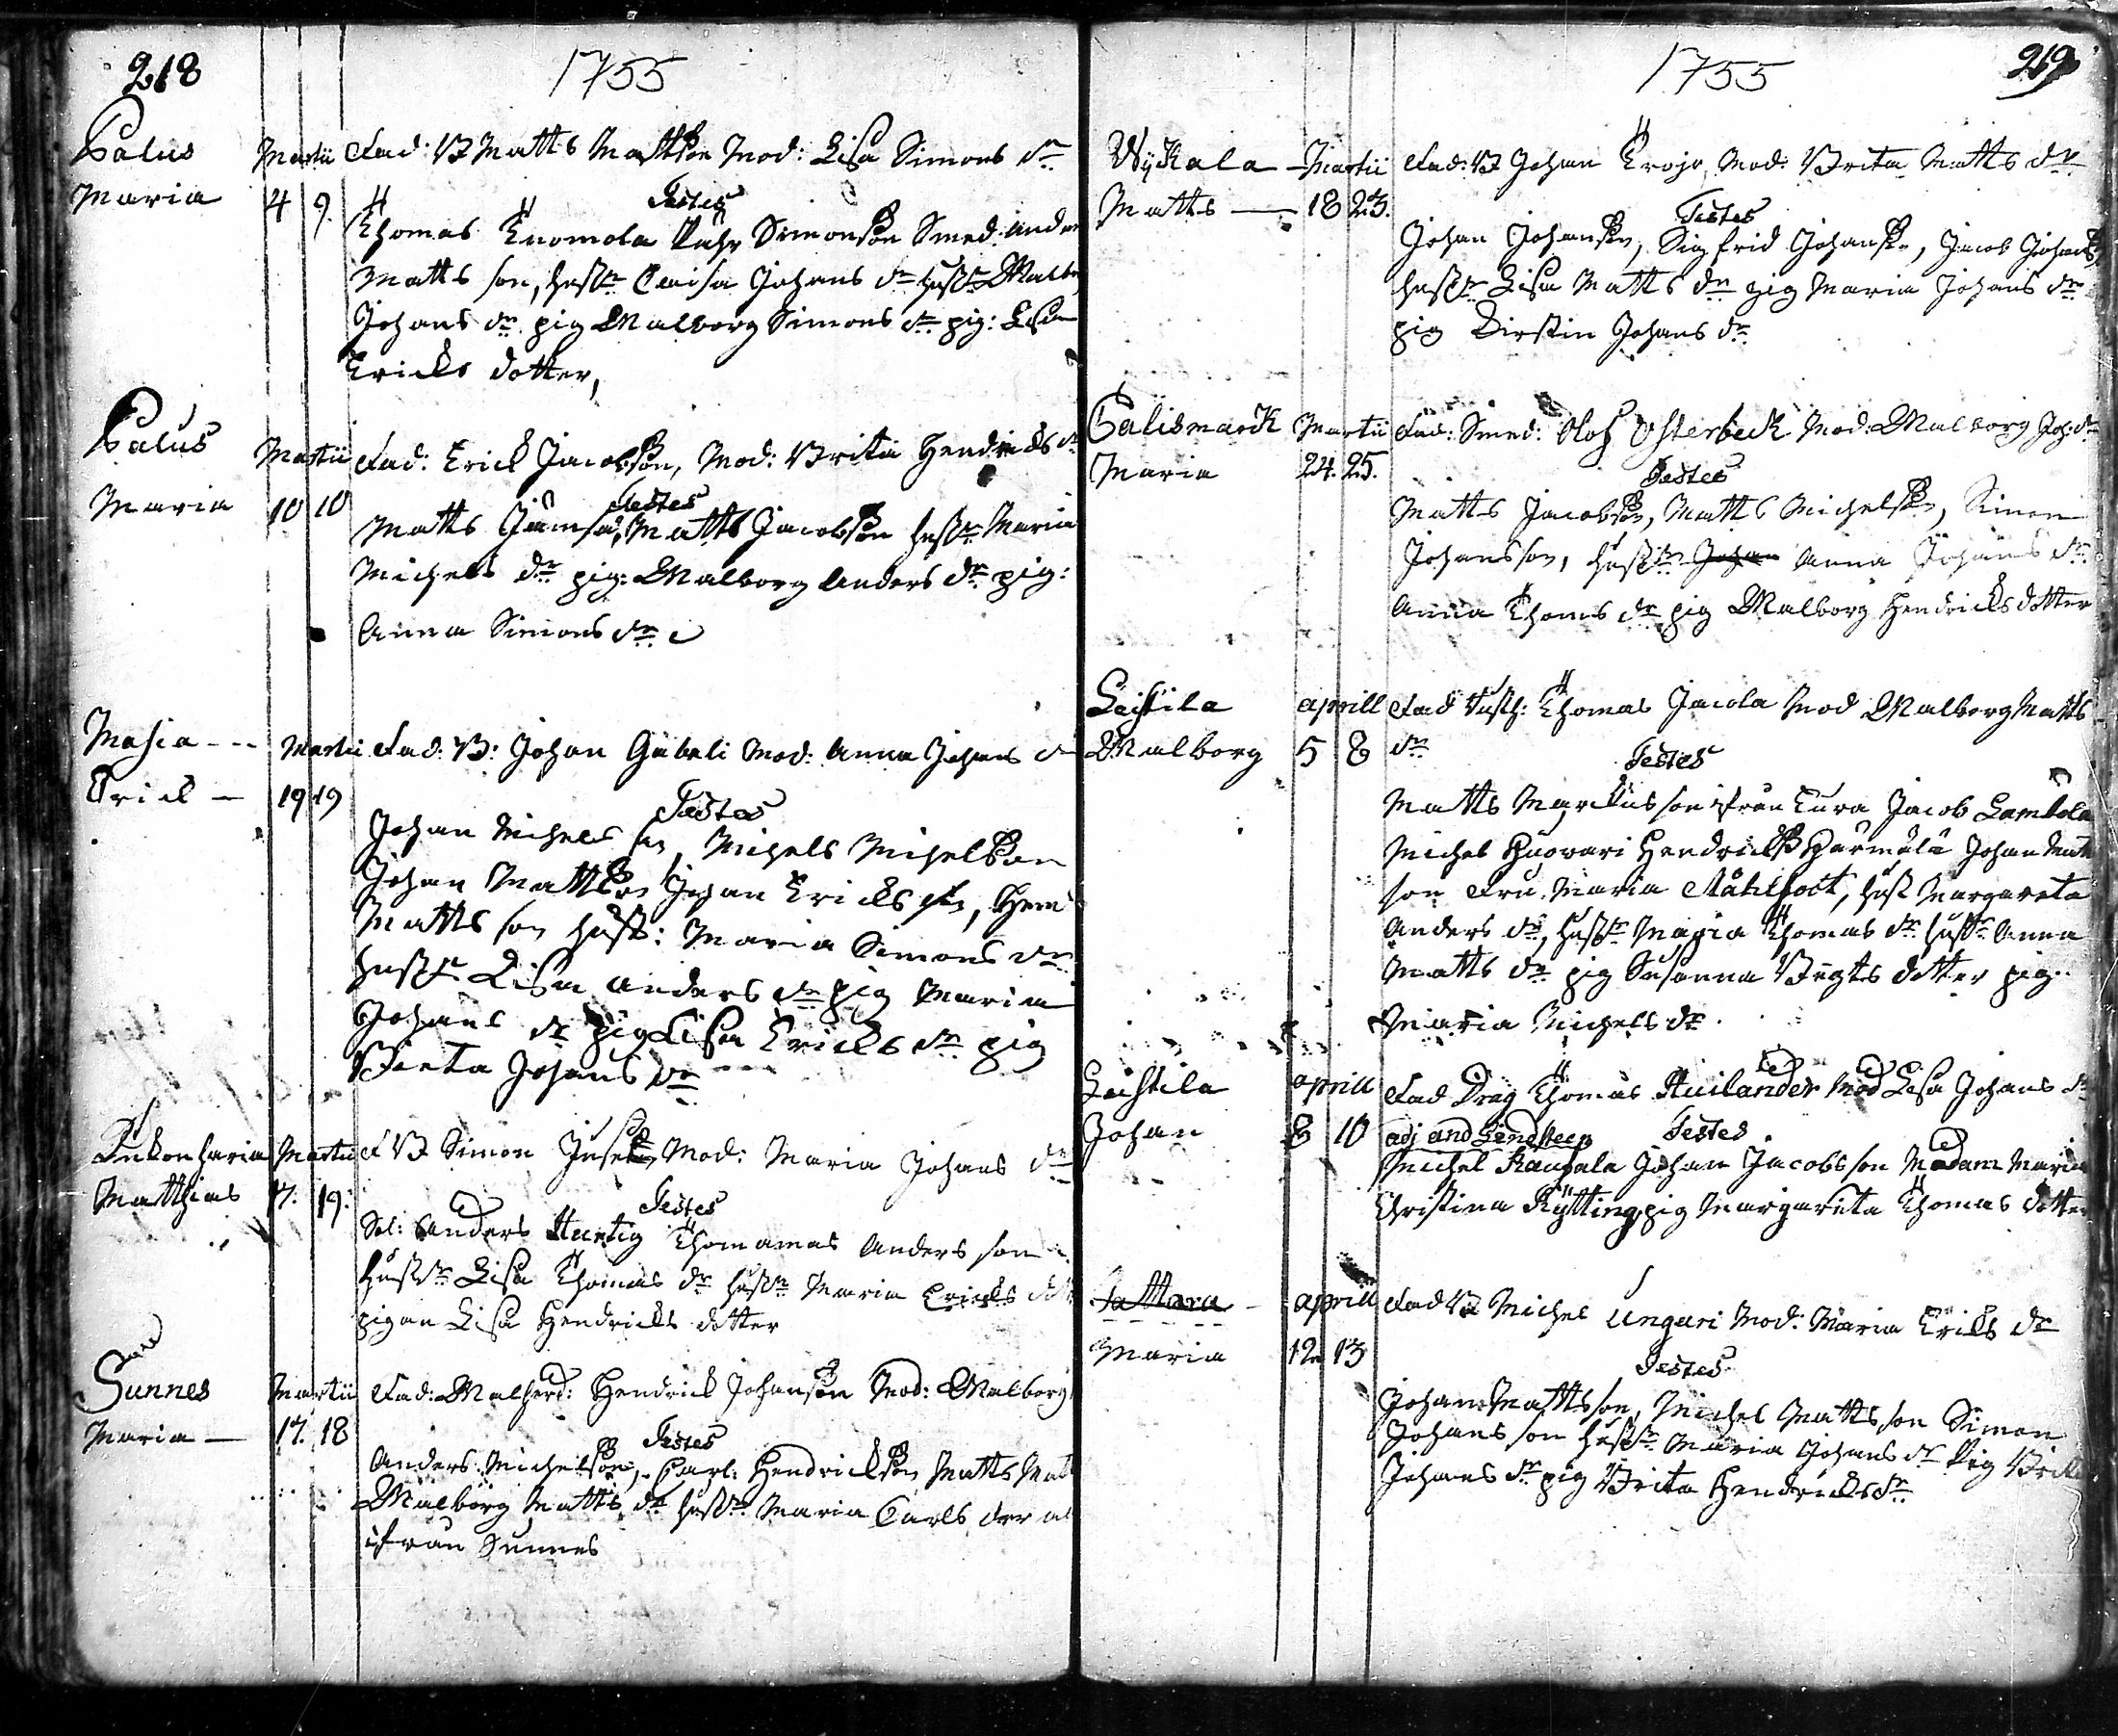 218
1755
Palus Martii Fad: B Matts Mattson Mod: Lisa Simons dr
Maria 4 9.
Testes
Thomas Simonson Smed: Ander
Matts son, hustr Caisa Johans dr hustr Walb
Johans dr pig Walborg Simons dr pig: Lisa
Ericks dotter,
Palus Martii Fad: Erick Jacobson, Mod: Brita Hendricks dr
Maria 10 10
Testes
Matts Jämsä, Matts Jacobson hustr Maria
Michels dr pig: Walborg Anders dr pig:
Anna Simons dr
Masia Martii Fad: B: Johan Gabeli Mod: Anna Johans dr
Erick 19 19
Testes
Johan Michels son, Michels Michelson
Johan Mattson Johan Ericks son, Hen
Matts son hust: Maria Simons dr
hustr Lisa Anders dr pig Maria
Johans dr pig Lisa Ericks dr pig
Brita Johans dr
Martii F B Simon Mod: Maria Johans dr
Matthias 17. 19.
Testes
Sol: Anders Hurtig Thomamas Anders son
hustr Lisa Thomas dr hustr Maria Ericks
pigan Lisa Hendricks dotter
Sunnes Martii Fad: Hendrick Johanson Mod: Walborg
Maria 17. 18
Testes
Anders Michelson, Carl: Hendrickson Matts Mat
Walborg Matts dr hustr Maria Carls der
ifrån Sunnes
219
1755
Wykala Martii Fad: B Johan Krojo, Mod: Brita Matts dr
Matts 18 23.
Testes
Johan Johanson, Sigfrid Johanson, Jacob Johans
hustr Lisa Matts dr pig Maria Johans dr
pig Kirstin Johans dr
Galismarck Martii Fad: Smed: Olof Osterbeck Mod: Walborg Joh: dr
Maria 24. 25.
Testes
Matts Jacobson, Matts Michelson, Simon
Johansson, hustr Johan Anna Johans dr
Anna Thoms dr pig Walborg Hendricks dotter
Leistila aprill Fad Thomas Jacola Mod Walborg Matts
Walborg 5 8 dr
Testes
Matts Marckus son ifrån Kura Jacob Lambola
Michel Huovari Hendricks Härmälä Johan Matt
son Fru Maria Ståhlfoot, hust Margareta
Anders dr, hustr Maria Thomas dr hustr Anna
Matts dr pig Susanna Bengts dotter pig
Maria Michels dr
Leistila aprill Fad Drag Thomas Huilander Mod Lisa Johans dr
Johan 8 10 adj and Lindsteen Testes
Michel Rausala Johan Jacobs son Madam Maria
Christina Kytting, pig Margareta Thomas dotter
Tattara aprill Fad B Michel Ungari Mod: Maria Ericks dr
Maria 12 13
Testes
Johan Mattsson, Michel Matts son Simon
Johans son hustr Maria Johans dr Pig Brita
Johans dr pig Brita Hendricks dr